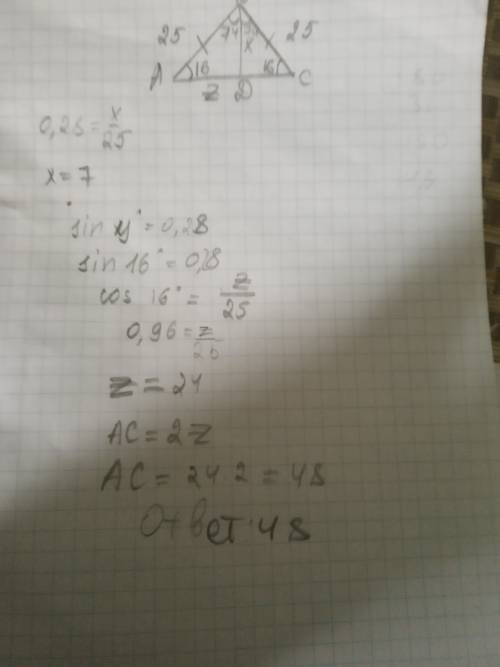 25 74 x 25
A 16 16 C
z D
0,28 = x/25
x = 7
sin y° = 0,28
sin 16° = 0,28
cos 16° = z/25
0,96 = z/25
z = 24
AC = 2z
AC = 24 · 2 = 48
Ответ: 48